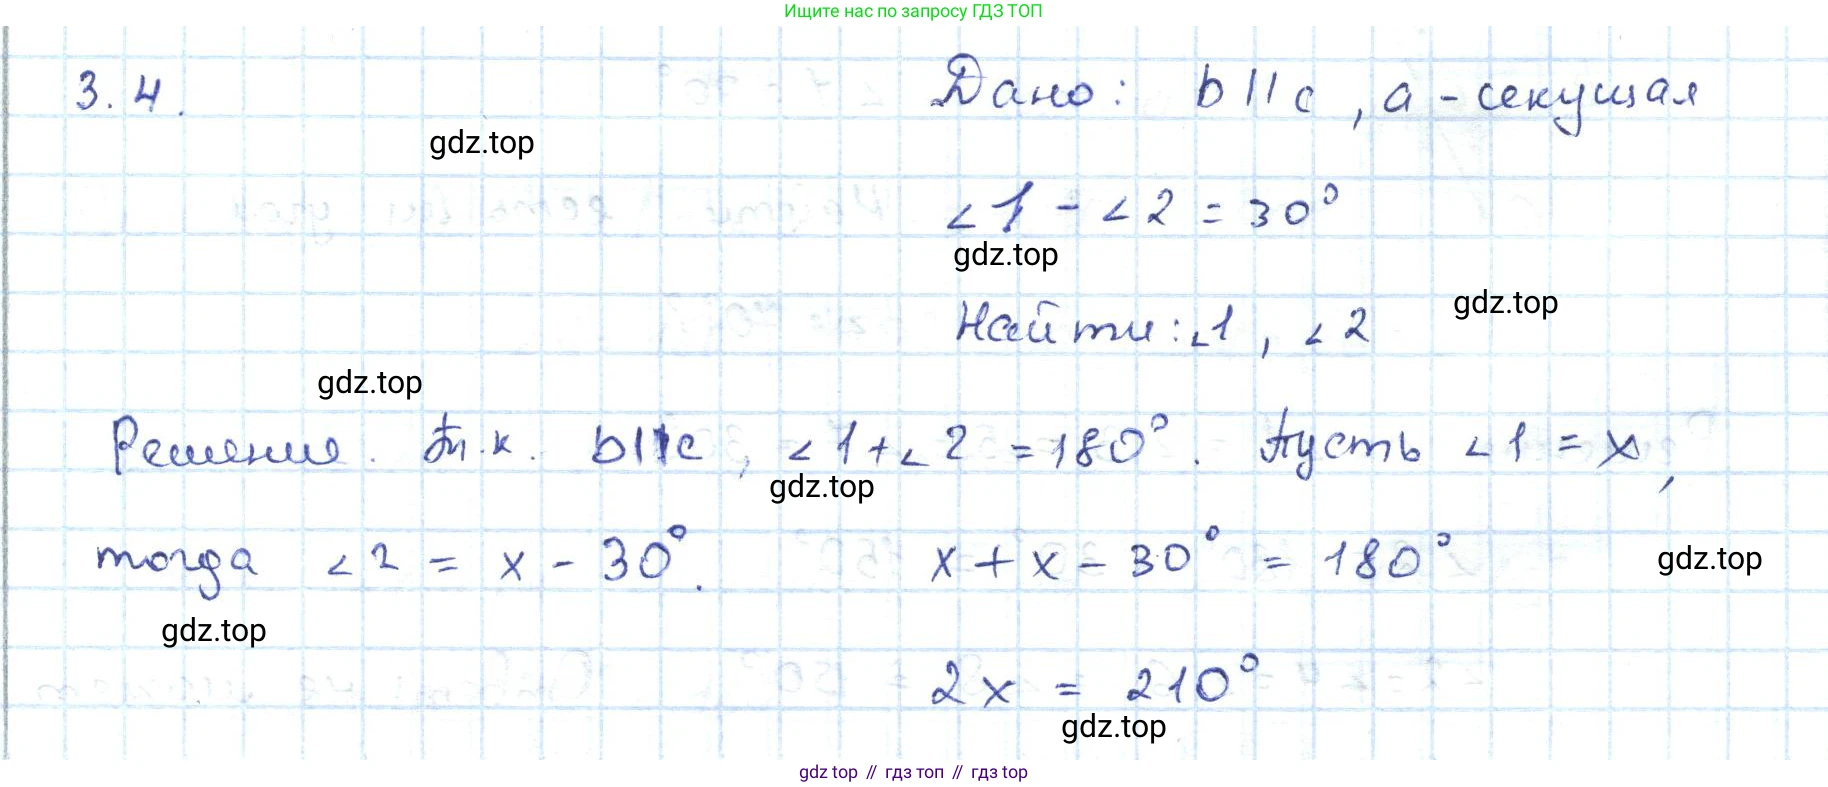 Ищите нас по запросу ГДЗ ТОП
3.4.
Дано: b || c, a - секущая
gdz.top
∠1 - ∠2 = 30°
gdz.top
Найти: ∠1, ∠2
gdz.top
gdz.top
Решение. Т.к. b || c, ∠1 + ∠2 = 180°. Пусть ∠1 = x,
gdz.top
тогда ∠2 = x - 30°. x + x - 30° = 180°
gdz.top
gdz.top
2x = 210°
gdz.top
gdz top // гдз топ // gdz top